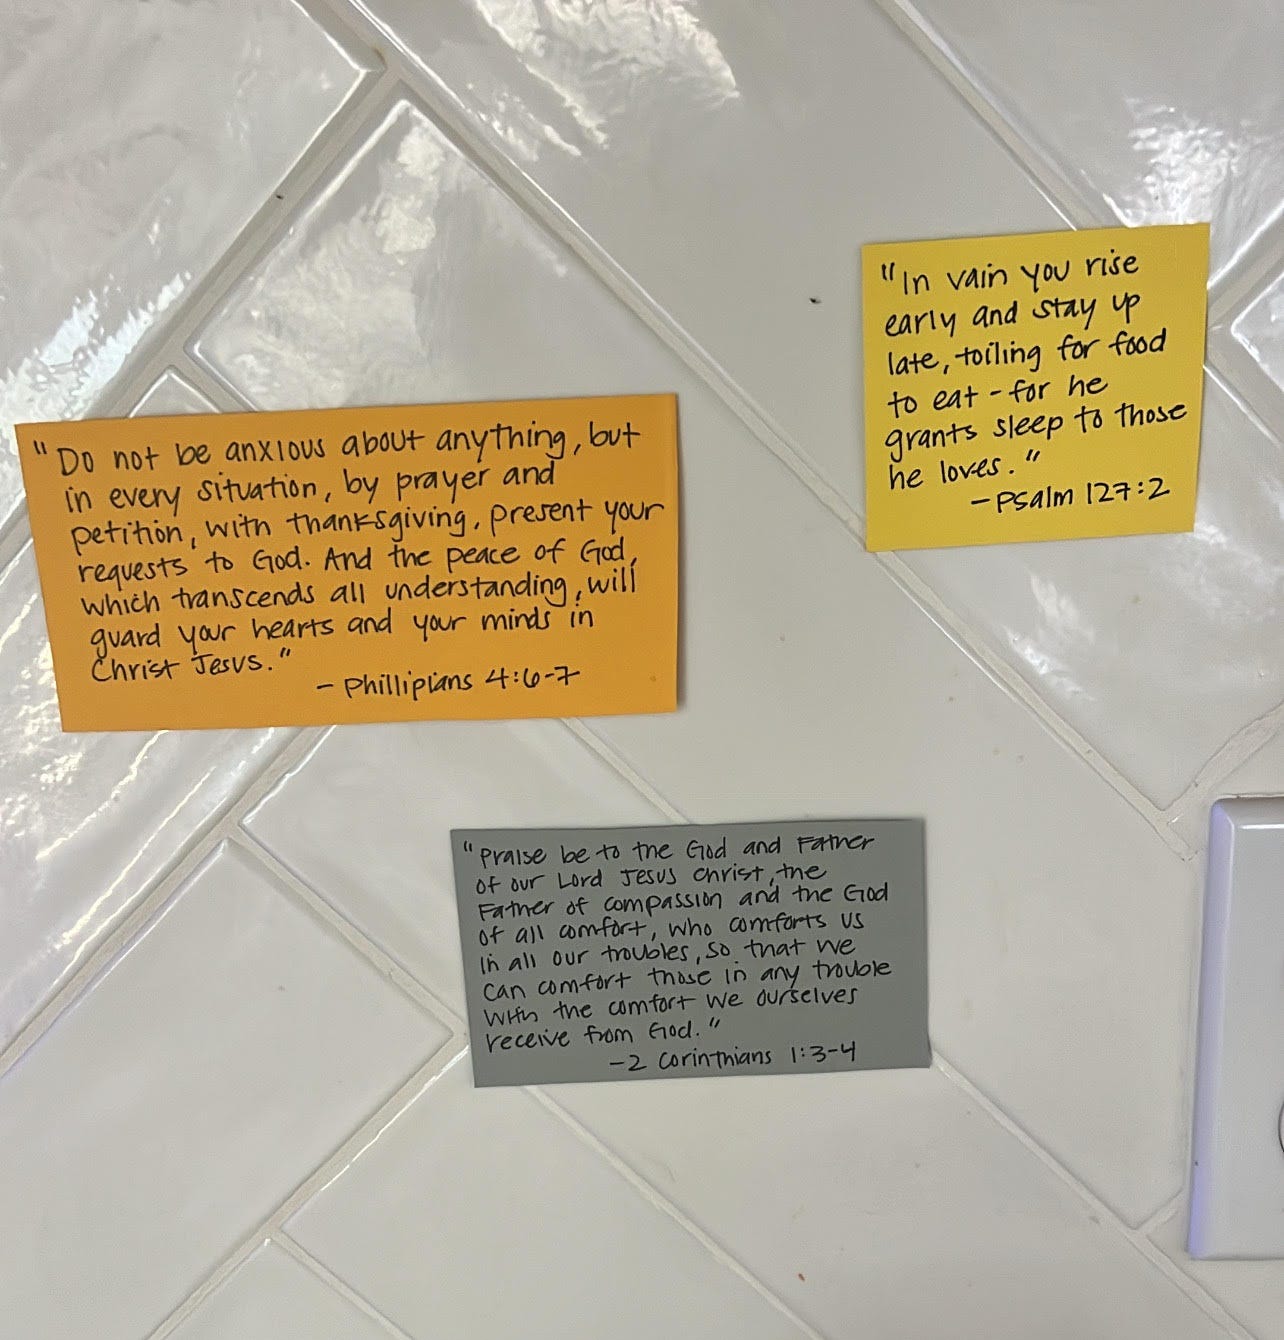 "Do not be anxious about anything, but
in every situation, by prayer and
petition, with thanksgiving, present your
requests to God. And the peace of God,
which transcends all understanding, will
guard your hearts and your minds in
Christ Jesus."
- Phillipians 4:6-7
"In vain you rise
early and stay up
late, toiling for food
to eat - for he
grants sleep to those
he loves."
- Psalm 127:2
"Praise be to the God and Father
of our Lord Jesus Christ, the
Father of compassion and the God
of all comfort, who comforts us
in all our troubles, so that we
can comfort those in any trouble
with the comfort we ourselves
receive from God."
-2 Corinthians 1:3-4